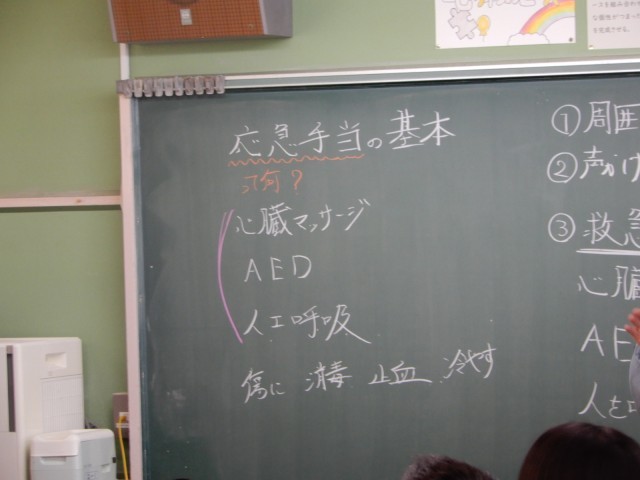 応急手当の基本
って何?
心臓マッサージ
AED
人工呼吸
傷に 消毒 止血 冷やす
①周囲
②声かけ
③救急
心臓
AE
人を